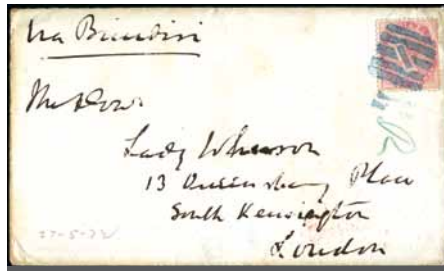 via Brindisi
The Honr
Lady Johnson
13 Queensberry Place
South Kensington
London
27-5-72